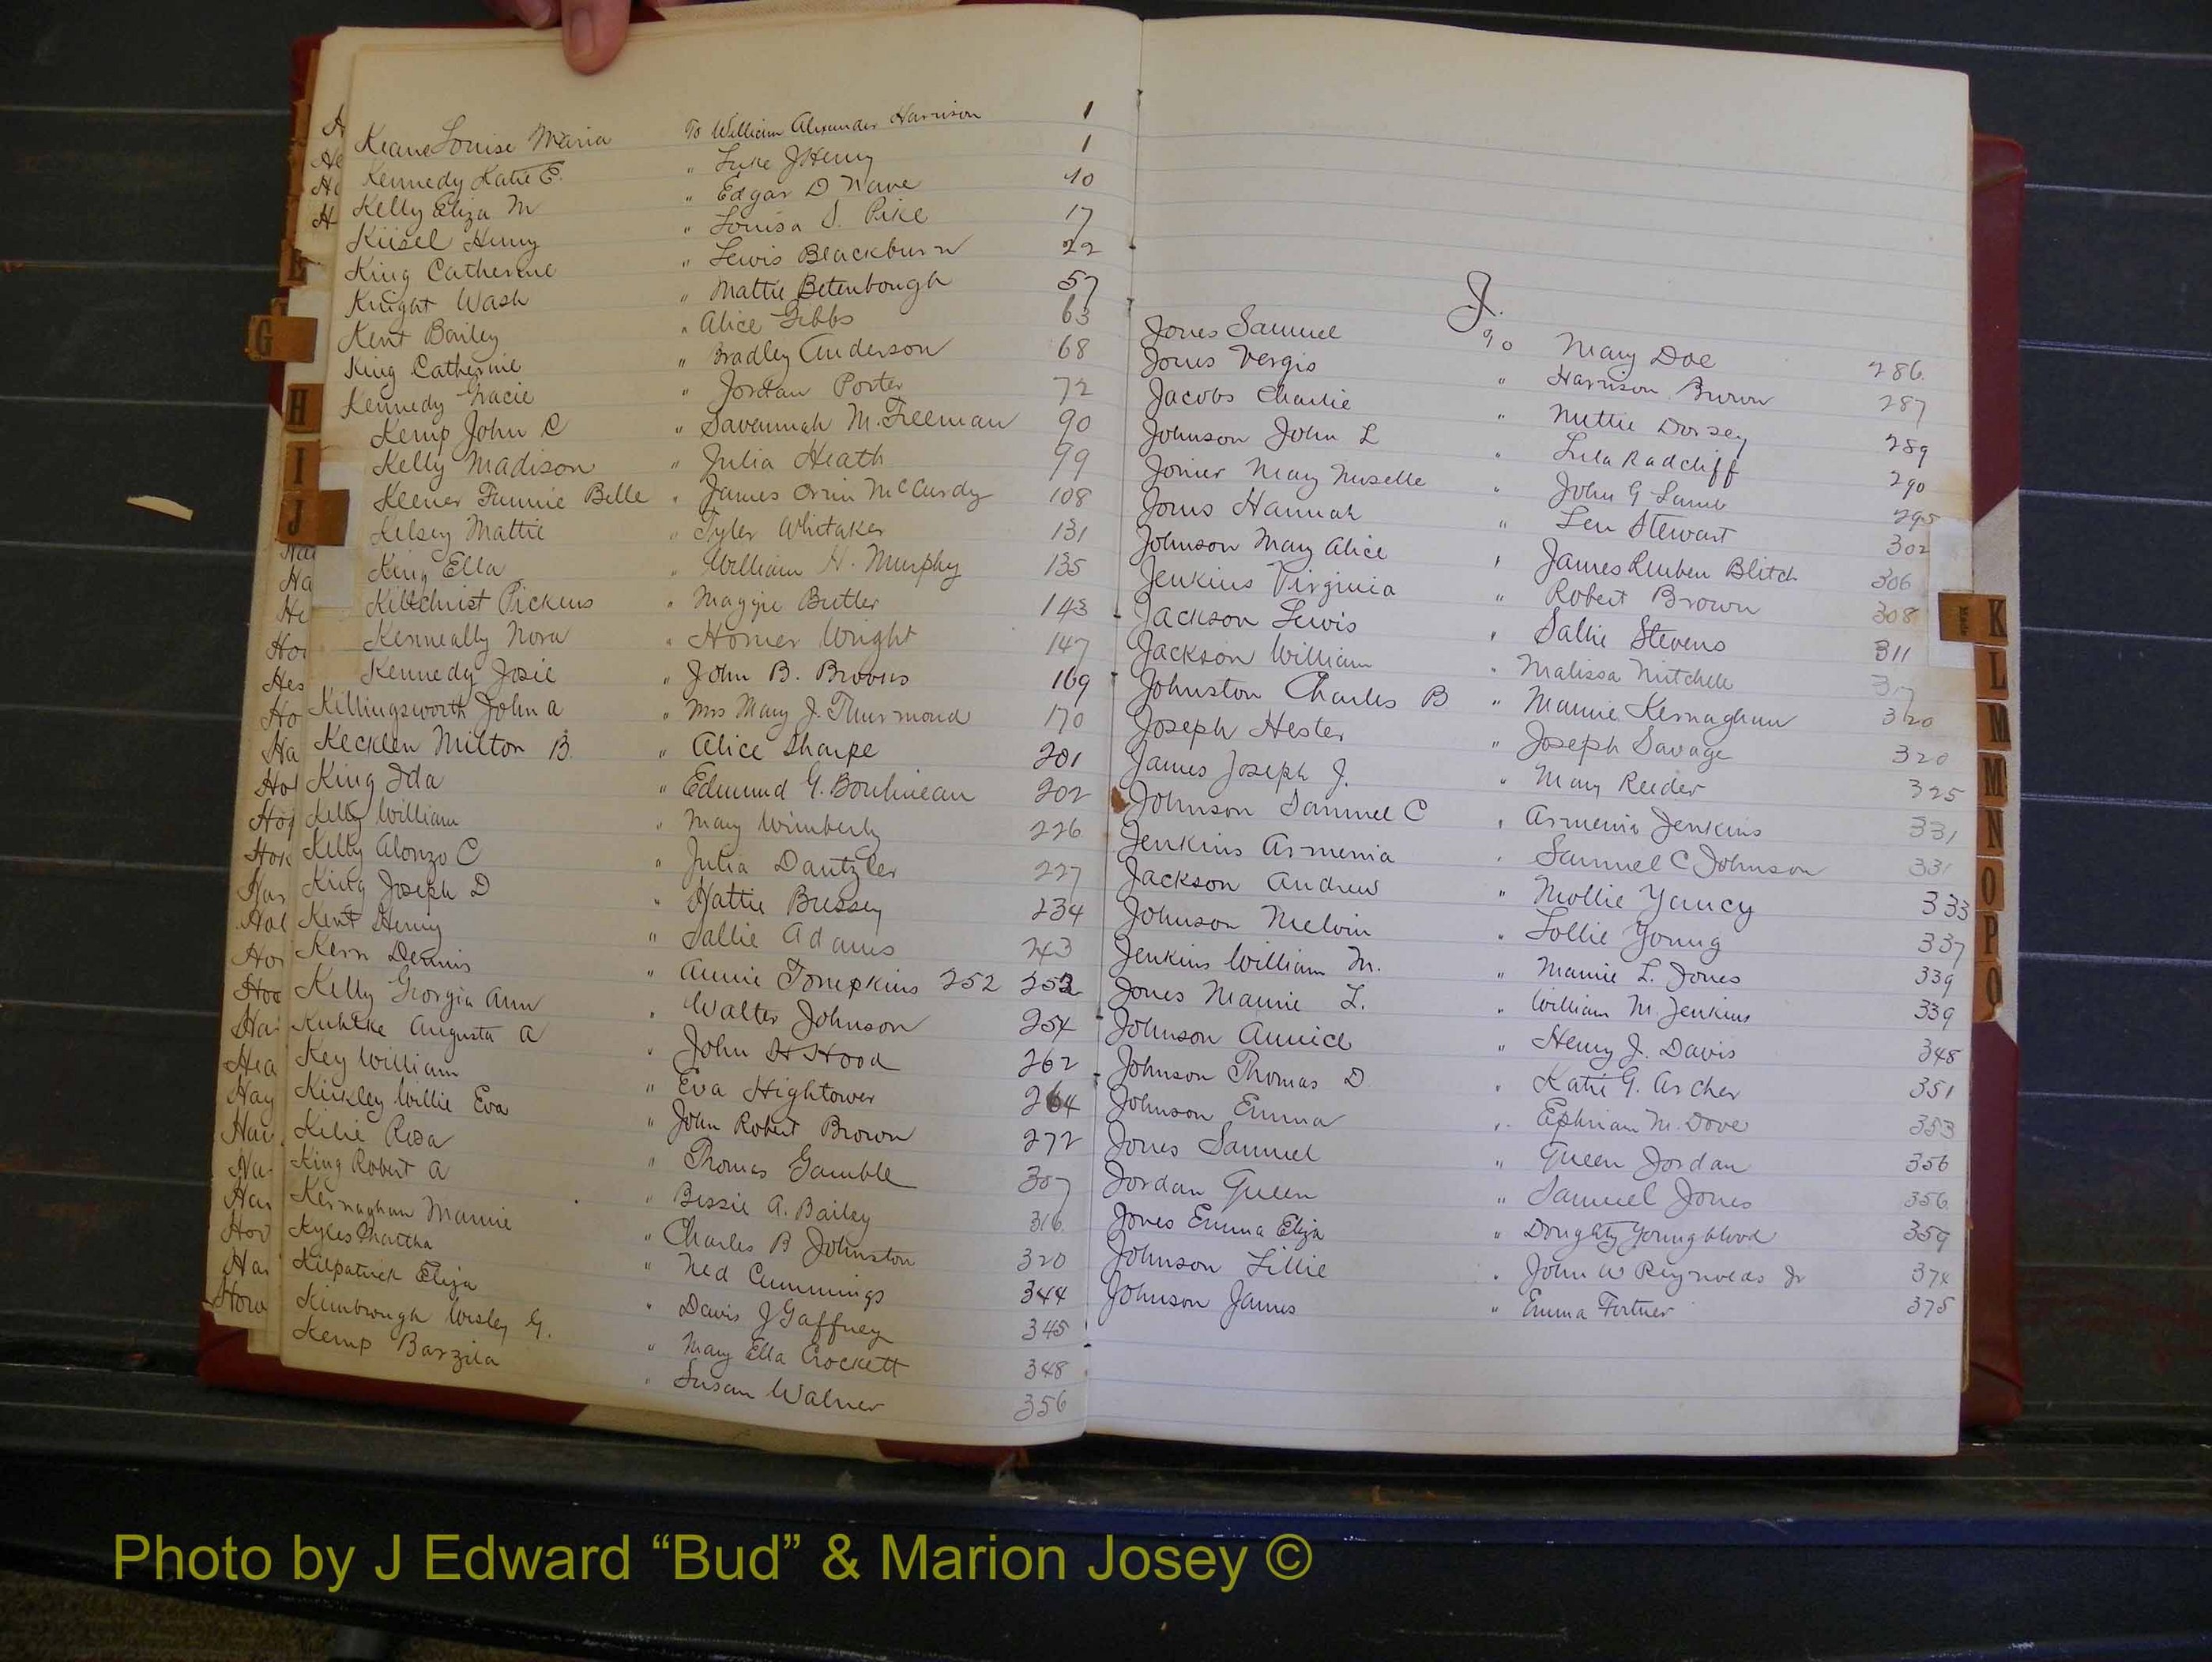 Keane Louise Maria To William Alexander Harrison 1
Kennedy Katie E. " Luke J Henry 1
Kelly Eliza M " Edgar D Nave 10
Kiisel Henry " Louisa S. Pike 17
King Catherine " Lewis Blackburn 22
Knight Wash " Mattie Betenbough 57
Kent Bailey " Alice Gibbs 63
King Catherine " Bradley Anderson 68
Kennedy Gracie " Jordan Porter 72
Kemp John C " Savannah M. Freeman 90
Kelly Madison " Julia Heath 99
Keener Fannie Belle " James Orrin McCurdy 108
Kelsey Mattie " Tyler Whitaker 131
King Ella " William H. Murphy 135
Killchrist Pickens " Maggie Butler 143
Kenneally Nora " Homer Wright 147
Kennedy Josie " John B. Brooks 169
Killingsworth John A " Mrs Mary J. Thurmond 170
Kecklen Milton B. " Alice Sharpe 201
King Ida " Edmund G. Boulineau 202
Kelly William " Mary Wimberly 226
Kelly Alonzo C " Julia Dantzler 227
King Joseph D " Hattie Bussey 234
Kent Henry " Sallie Adams 243
Kern Dennis " Annie Tompkins 252 252
Kelly Georgia Ann " Walter Johnson 254
Kuhlke Augusta A " John H Hood 262
Key William " Eva Hightower 264
Kirkley Willie Eva " John Robert Brown 272
Kilie Rosa " Thomas Gamble 307
King Robert A " Bessie A. Bailey 316
Kernaghan Mamie " Charles B Johnston 320
Kyles Martha " Ned Cummings 344
Kilpatrick Eliza " Davis J Gaffney 345
Kimbrough Wesley G. " Mary Ella Crockett 348
Kemp Barzila " Susan Walner 356
J.
Jones Samuel To Mary Doe 286
Jones Vergis " Harrison Brown 287
Jacobs Charlie " Nettie Dorsey 289
Johnson John L " Lula Radcliff 290
Joiner Mary Muselle " John G Lamb 295
Jones Hannah " Len Stewart 302
Johnson Mary Alice " James Reuben Blitch 306
Jenkins Virginia " Robert Brown 308
Jackson Lewis " Sallie Stevens 311
Jackson William " Malissa Mitchell 317
Johnston Charles B " Mamie Kernaghan 320
Joseph Hester " Joseph Savage 320
James Joseph J. " Mary Reeder 325
Johnson Samuel C " Armenia Jenkins 331
Jenkins Armenia " Samuel C Johnson 331
Jackson Andrew " Mollie Yancy 333
Johnson Melvin " Lollie Young 337
Jenkins William M. " Mamie L. Jones 339
Jones Mamie L. " William M. Jenkins 339
Johnson Annice " Henry J. Davis 348
Johnson Thomas D " Katie G. Archer 351
Johnson Emma " Ephriam M. Dove 353
Jones Samuel " Queen Jordan 356
Jordan Queen " Samuel Jones 356
Jones Emma Eliza " Doughty Youngblood 359
Johnson Lillie " John W Reynolds Jr 374
Johnson James " Emma Fortner 375
E
G
H
I
J
K
L
M
M
N
O
P
Q
Photo by J Edward “Bud” & Marion Josey ©